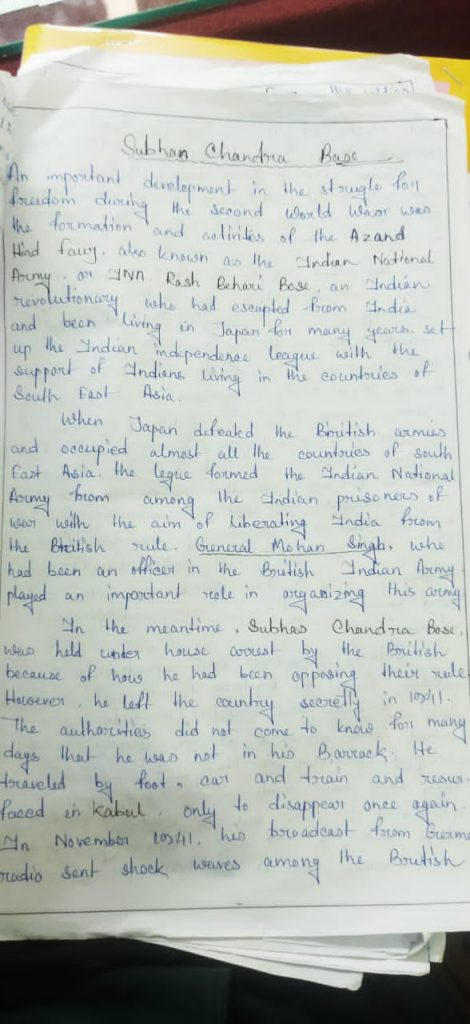 Subhan Chandra Base
An important development in the struggle for
freedom during the second World Waor was
the formation and activites of the Azand
Hind fauy. also known as the Indian National
Army. or INA. Rash Behari Bose, an Indian
revolutionary who had escapted from India
and been living in Japan for many years. set
up the Indian independence league with the
support of Indians living in the countries of
South East Asia.
When Japan defeated the British armies
and occupied almost all the countries of south
East Asia. the legue formed the Indian National
Army from among the Indian prisoners of
war with the aim of liberating India from
the British rule. General Mohan Singh, who
had been an officer in the British Indian Army.
played an important role in organizing this army.
In the meantime, Subhas Chandra Bose,
was held under house arrest by the British
because of how he had been opposing their rule
However, he left the country secretly in 1941.
The authorities did not come to know for many
days that he was not in his Barrack. He
traveled by foot, car and train and resur-
faced in Kabul, only to disappear once again.
In November 1941, his broadcast from
radio sent shock waves among the British